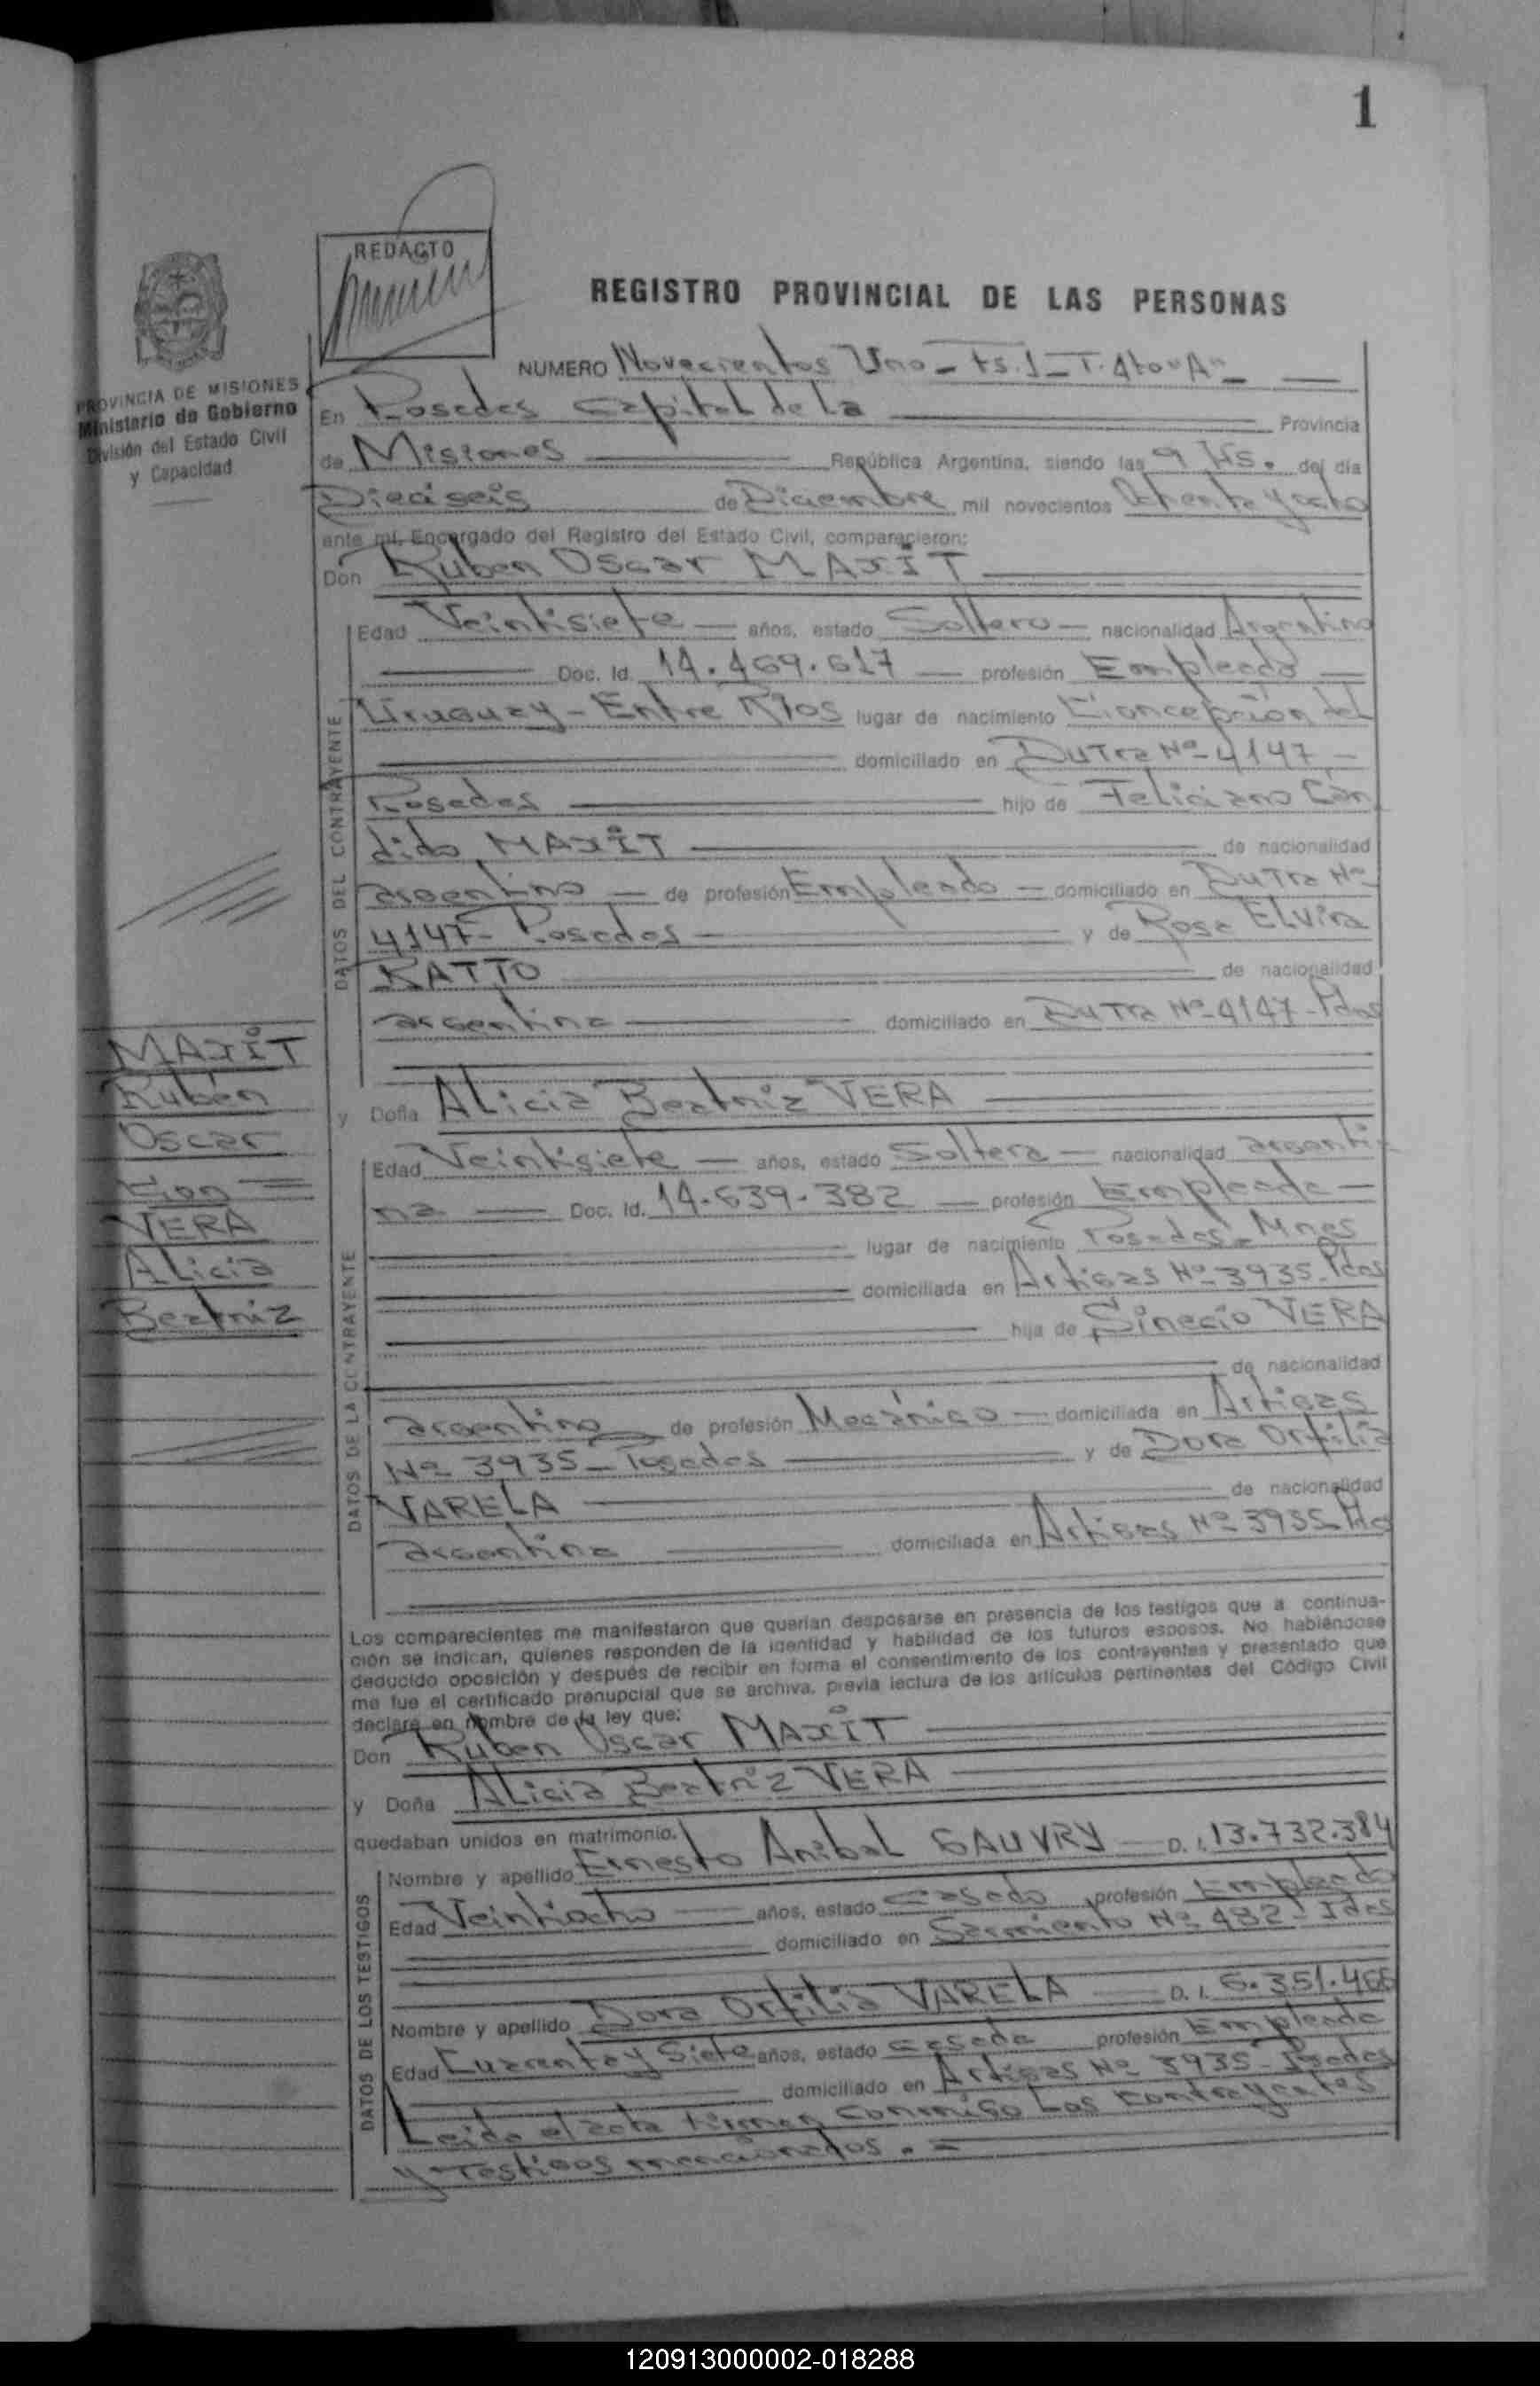 1
REDACTO
REGISTRO PROVINCIAL DE LAS PERSONAS
PROVINCIA DE MISIONES
Ministerio de Gobierno
División del Estado Civil
y Capacidad
NUMERO Novecientos Uno - Fs. 1 - T. 4to "A" -
En Posadas Capital de La Provincia
de Misiones República Argentina, siendo las 9 Hs. del día
Dieciseis de Diciembre mil novecientos Ochenta y ocho
ante mí, Encargado del Registro del Estado Civil, comparecieron:
Don Rubén Oscar MAXIT
DATOS DEL CONTRAYENTE
Edad Veintisiete años, estado Soltero - nacionalidad Argentino
Doc. Id. 14.469.617 profesión Empleado
Uruguay - Entre Ríos lugar de nacimiento Concepción del
domiciliado en Dutra Nº 4147 -
Posadas hijo de Feliciano Cán
dido MAXIT de nacionalidad
argentino de profesión Empleado - domiciliado en Dutra Nº
4147 - Posadas y de Rosa Elvira
RATTO de nacionalidad
argentina domiciliado en Dutra Nº 4147 - Pdas
MAXIT
Rubén
Oscar
Con
VERA
Alicia
Beatriz
y Doña Alicia Beatriz VERA
DATOS DE LA CONTRAYENTE
Edad Veintisiete - años, estado Soltera - nacionalidad argenti
na Doc. Id. 14.639.382 profesión Empleada -
lugar de nacimiento Posadas - Mnes
domiciliada en Artigas Nº 3935 - Pdas
hija de Sinecio VERA
de nacionalidad
argentino de profesión Mecánico - domiciliada en Artigas
Nº 3935 - Posadas y de Dora Orfilia
VARELA de nacionalidad
argentina domiciliada en Artigas Nº 3935 - Pdas
Los comparecientes me manifestaron que querían desposarse en presencia de los testigos que a continua-
ción se indican, quienes responden de la identidad y habilidad de los futuros esposos. No habiéndose
deducido oposición y después de recibir en forma el consentimiento de los contrayentes y presentado que
me fue el certificado prenupcial que se archiva, previa lectura de los artículos pertinentes del Código Civil
declaré en nombre de la ley que:
Don Rubén Oscar MAXIT
y Doña Alicia Beatriz VERA
quedaban unidos en matrimonio.
DATOS DE LOS TESTIGOS
Nombre y apellido Ernesto Anibal GAUVRY D. I. 13.732.384
Edad Veintiocho años, estado Casado profesión Empleado
domiciliado en Sarmiento Nº 482 - Pdas
Nombre y apellido Dora Orfilia VARELA D. I. 6.351.466
Edad Cuarenta y Siete años, estado Casada profesión Empleada
domiciliado en Artigas Nº 3935 - Posadas
Leída el acta firman conmigo Los contrayentes
y Testigos mencionados. =
120913000002-018288